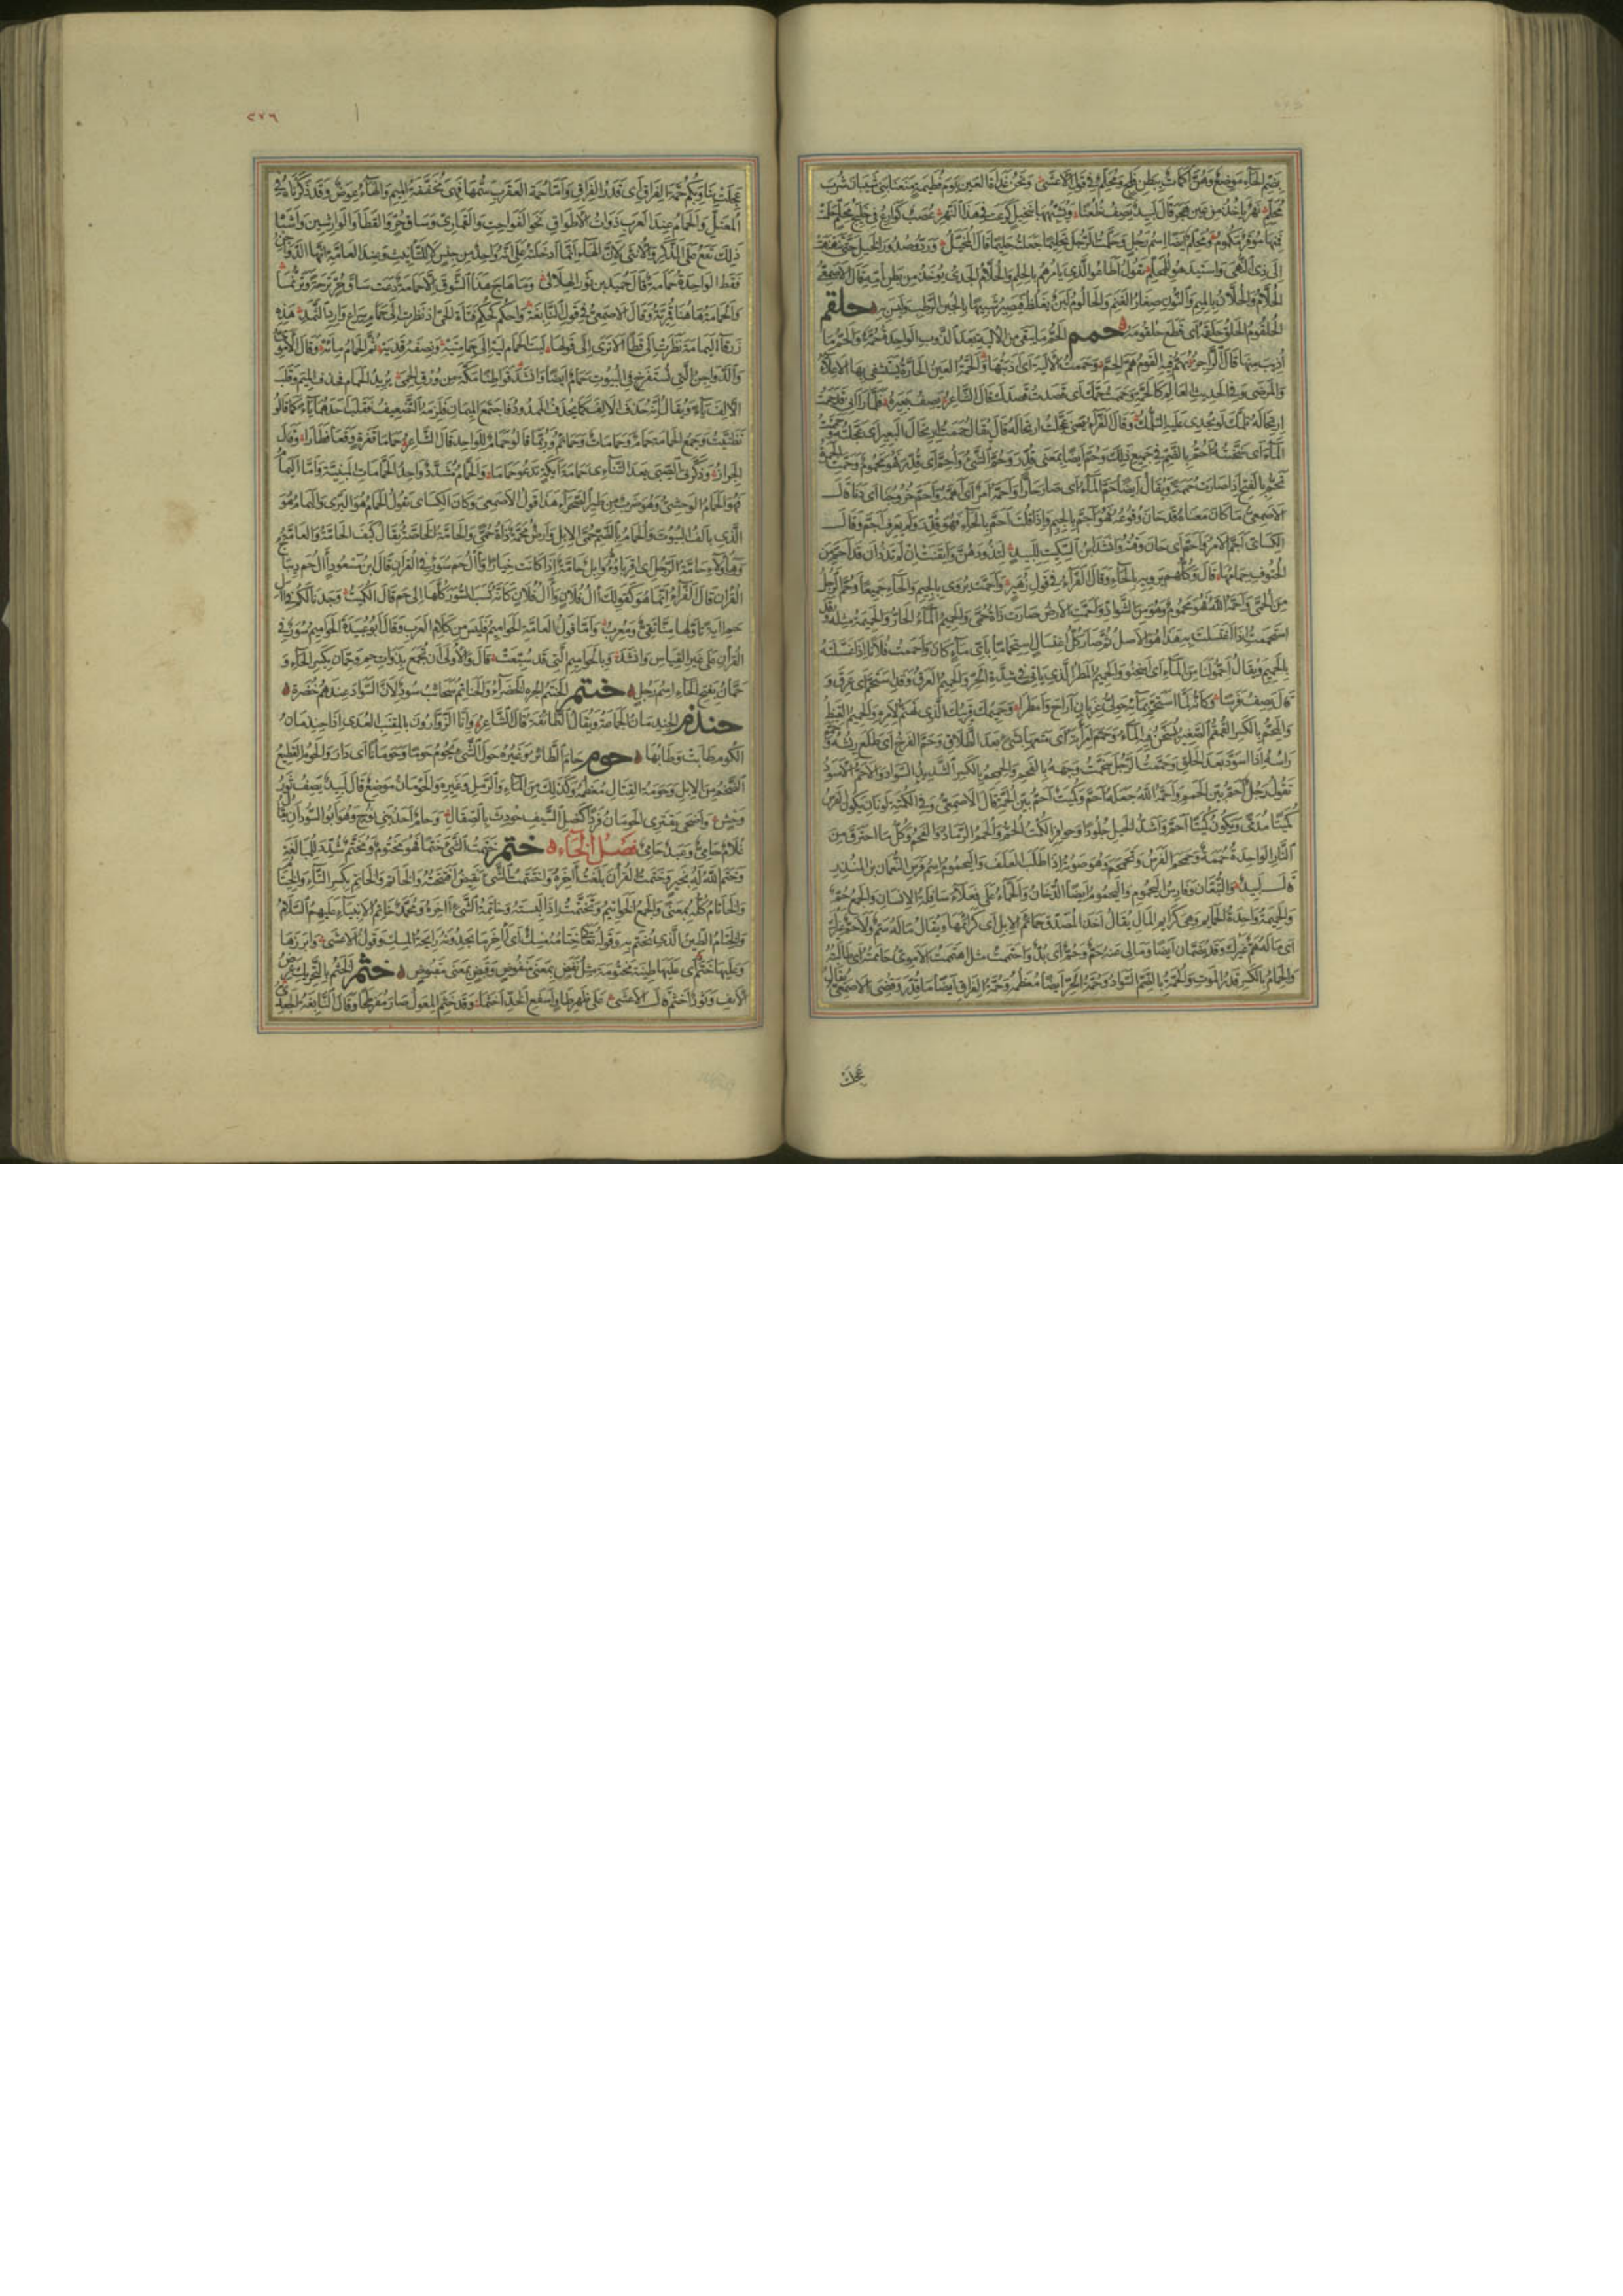 بضم الحاء موضع وهن اكمات ببطن فلج ومحلم في قول الاعشى ونحن غداة العين يوم فطيمة منعنا بني شيبان شرب
محلم نهر ياخذ من عين هجر قال لبيد يصف ظعنا
ومحلم ايضا اسم رجل وحلمت الرجل تحليما جعلته حليما قال المخبل وردوا صدور الخيل حتى تنهنهت
الى ذي النهى واستيدهوا للمحلم يقول اطاعوا الذي يامرهم بالحلم والحلام الجدي يوخذ من بطن امه قال الاصمعي
الحلام والحلان بالميم والنون صغار الغنم والحالوم لبن يغلظ فيصير شبيها بالجبن الرطب وليس به حلقم
الحلقوم الحلق وحلقمه اي قطع حلقومه حمم الحم ما يبقى من الالية بعد الذوب الواحدة حمة والحم ما
اذيب منها قال الراجز يهم فيه القوم هم الحم وحممت الالية اي اذبتها والحمة العين الحارة يستشفي بها الاعلاء
والمرضى وفي الحديث العالم كالحمة وحممت حمك اي قصدت قصدك قال الشاعر يصف بعيره فلما راني قد حممت
ارتحاله تلمك لو يجدي عليه التلمك وقال الفراء يعني عجلت ارتحاله قال يقال حممت ارتحال البعير اي عجلته وحممت
الماء اي سخنته احم بالضم في جميع ذلك وحم ايضا بمعنى قدر وحم الشيء واحم اي قدر فهو محموم وحمت الجمرة
تحم بالفتح اذا صارت حممة ويقال ايضا حم الماء اي صار حارا واحمه امر اي اهمه واحم خروجنا اي دنا قال
الاصمعي ما كان معناه قد حان وقوعه فهو اجم بالجيم واذا قلت احم بالحاء فهو قدر ولم يعرف احم وقال
الكسائي اجم الامر واحم اي حان وقته وانشد ابن السكيت للبيد لتذودهن وايقنت ان لم تذد ان قد احم من
الحتوف حمامها قال وكلهم يرويه بالحاء وقال الفراء في قول زهير واجمت يروى بالجيم والحاء جميعا وحم الرجل
من الحمى واحمه الله فهو محموم وهو من الشواذ واحمت الارض صارت ذات حمى والحميم الماء الحار والحميمة مثله وقد
استحممت اذا اغتسلت به هذا هو الاصل ثم صار كل اغتسال استحماما باي ماء كان واحممت فلانا اذا غسلته
بالحميم ويقال احموا لنا من الماء اي اسخنوا والحميم المطر الذي ياتي في شدة الحر والحميم العرق وقد استحم اي عرق و
قال يصف فرسا وكانه لما استحم بمائه حولي غربان اراح وامطرا وحميمك قريبك الذي تهتم لامره والحميم القيظ
والمحم بالكسر القمقم الصغير يسخن فيه الماء وحمم امراته اي متعها بشيء بعد الطلاق وحمم الفرخ اي طلع ريشه وحمم
راسه اذا اسود بعد الحلق وحممت الرجل سخمت وجهه بالفحم والحمحم بالكسر الشديد السواد والاحم الاسود
تقول رجل احم بين الحمم واحمه الله جعله احم وكميت احم بين الحمة قال الاصمعي وفي الكمتة لونان يكون الفرس
كميتا مدمى ويكون كميتا احم واشد الخيل جلودا وحوافر الكمت الحم والحمم الرماد والفحم وكل ما احترق من
النار الواحدة حممة وحمحم الفرس وتحمحم وهو صوته اذا طلب العلف واليحموم اسم فرس النعمان بن المنذر
قال لبيد والتبعان وفارس اليحموم واليحموم ايضا الدخان والحماء على فعلاء سافلة الانسان والجمع حم
والحميمة واحدة الحمائم وهي كرائم المال يقال اخذ المصدق حمائم الابل اي كرائمها ويقال ماله سم ولا حم غيرك
اي ماله هم غيرك وقد يضمان ايضا وما لي عنه حم وحم اي بد واحتممت مثل اهتممت الاموي حاممته اي طالبته
والحمام بالكسر قدر الموت والحمة بالضم السواد وحمة الحر ايضا معظمه وحمة الفراق ايضا ما قدر وقضي الاصمعي يقال
عجلت
٢٧٦
عجلت بنا وبكم حمة الفراق اي قدر الفراق واما حمة العقرب سمها فهي مخففة الميم والهاء عوض وقد ذكرناه في
المعتل والحمام عند العرب ذوات الاطواق نحو الفواخت والقماري وساق حر والقطا والوراشين واشباه
ذلك تقع على الذكر والانثى لان الهاء انما ادخلته على انه واحد من جنس لا للتانيث وعند العامة انها الدواجن
فقط الواحدة حمامة قال حميد بن ثور الهلالي وما هاج هذا الشوق الا حمامة دعت ساق حر ترحة وترنما
والحمامة هاهنا قمرية وقال الاصمعي في قول النابغة واحكم كحكم فتاة الحي اذ نظرت الى حمام سراع وارد الثمد هذه
زرقاء اليمامة نظرت الى قطا الا ترى الى قولها ليت الحمام ليه الى حمامتيه ونصفه قديه تم الحمام مائه وقال الاموي
والدواجن التي تستفرخ في البيوت حمام ايضا وانشد قواطنا مكة من ورق الحمي يريد الحمام فحذف الميم وقلب
الالف ياء ويقال انه حذف الالف كما يحذف الممدود فاجتمع الميمان فلزمه التضعيف فقلب احدهما ياء كما قالوا
تظنيت وجمع الحمامة حمام وحمامات وحمائم وربما قالوا حمام للواحد قال الشاعر حماما قفرة وقعا فطارا وقال
جران وذكرني الصبى بعد التنائي حمامة ايكة تدعو حماما والحمام مشدد واحد الحمامات المبنية واما اليمام
فهو الحمام الوحشي وهو ضرب من طير الصحراء هذا قول الاصمعي وكان الكسائي يقول الحمام هو البري واليمام هو
الذي يالف البيوت والحمام بالضم حمى الابل وارض محمة ذات حمى والحامة الخاصة يقال كيف الحامة والعامة
وهاولاء حامة الرجل اي اقرباوه وابل حامة اذا كانت خيارا وآل حم سور في القران قال ابن مسعود آل حم ديباج
القران قال الفراء انما هو كقولك آل فلان وآل فلان كانه نسب السور كلها الى حم قال الكميت وجدنا لكم في آل
حم اية تاولها منا تقي ومعرب واما قول العامة الحواميم فليس من كلام العرب وقال ابو عبيدة الحواميم سور في
القران على غير القياس وانشد وبالحواميم التي قد سبعت قال والاولى ان تجمع بذوات حم وحمان بكسر الحاء و
حمان بفتح الحاء اسم رجل حنتم الحنتم الجرة الخضراء والحناتم سحائب سود لان السواد عندهم خضرة
حنذم الحنذمان الجماعة ويقال الطائفة قال الشاعر وانا الزوارون بالمقنب العدى اذا حنذمان
اللوم طابت وطابها حوم حام الطائر وغيره حول الشيء يحوم حوما وحومانا اي دار والحوم القطيع
الضخم من الابل وحومة القتال معظمه وكذلك من الماء والرمل وغيره والحومان موضع قال لبيد يصف ثور
وحش واضحى يقتري الحومان فردا كنصل السيف حودث بالصقال وحام احد بني نوح وهو ابو السودان يقال
غلام حامي وعبد حامي فصل الخاء ختم ختمت الشيء ختما فهو مختوم ومختم شدد للمبالغة
وختم الله له بخير وختمت القران بلغت اخره واختتمت الشيء نقيض افتتحته والخاتم والخاتم بكسر التاء والخيتام
والخاتام كله بمعنى والجمع الخواتيم وتختمت اذا لبسته وخاتمة الشيء اخره ومحمد خاتم الانبياء عليهم السلام
والختام الطين الذي يختم به وقوله تعالى ختامه مسك اي اخر ما يجدونه رائحة المسك وقول الاعشى وابرزها
وعليها ختم اي عليها طينة مختومة مثل نفض بمعنى منفوض وقبض بمعنى مقبوض خثم الخثم بالتحريك عرض
الانف وثور اخثم قال الاعشى على ظهر طاو اسفع الخد اخثما وقد خثم المعول صار مفرطحا وقال النابغة الجعدي